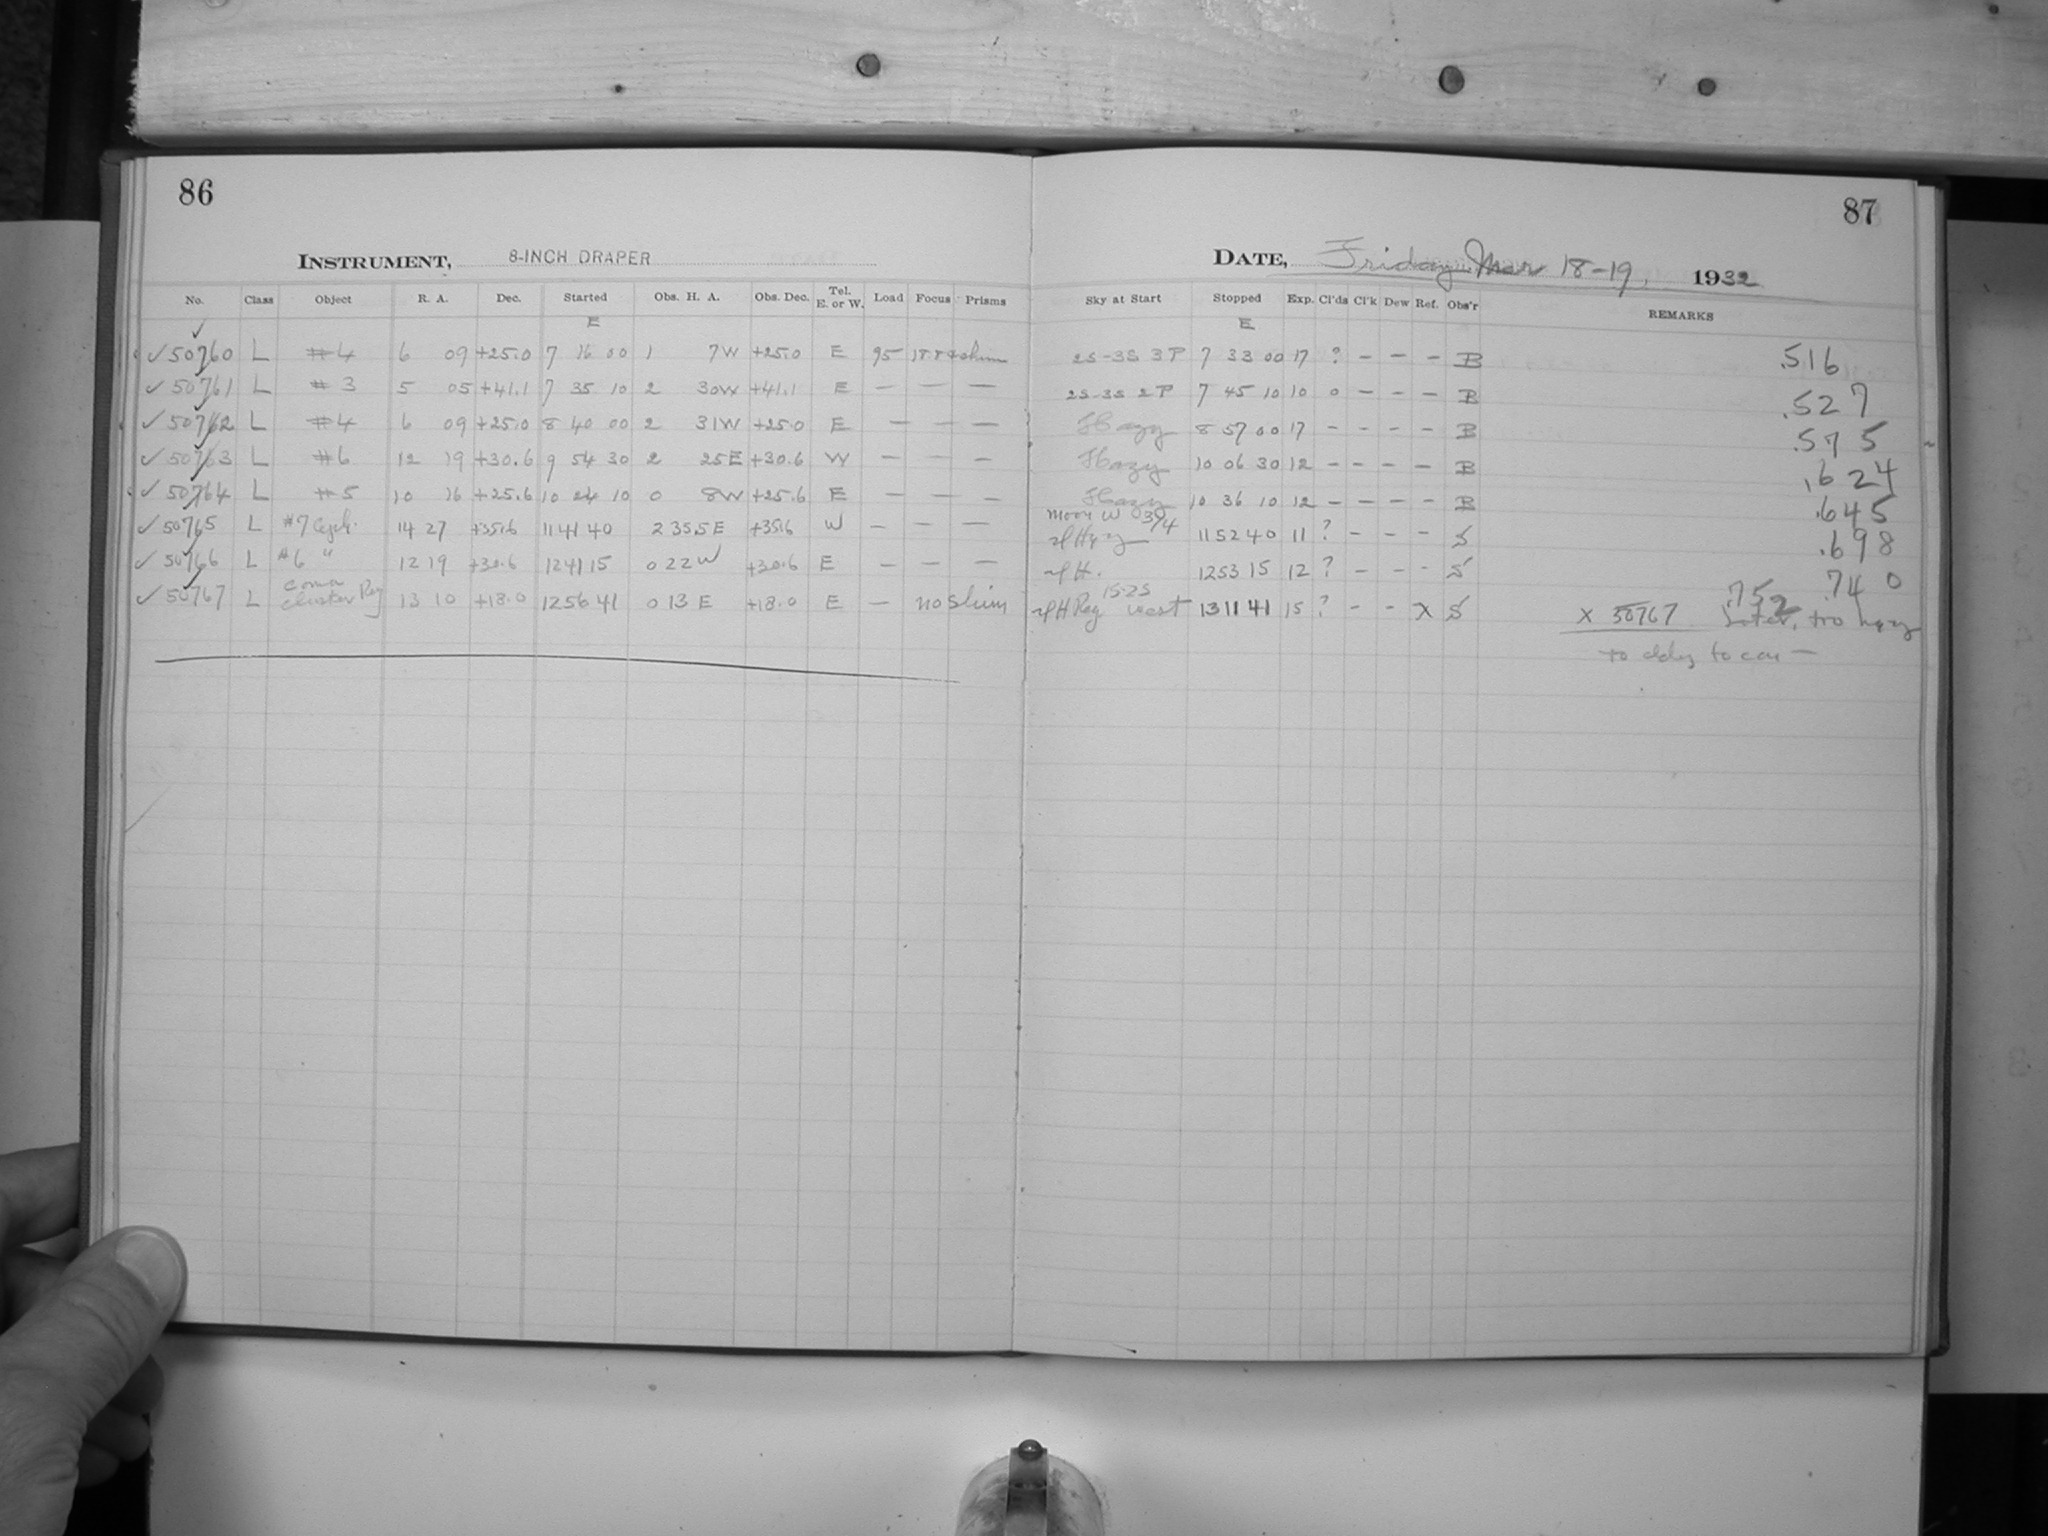 86
INSTRUMENT, 8-INCH DRAPER
No. Class Object R. A. Dec. Started Obs. H. A. Obs. Dec. Tel. E. or W. Load Focus Prisms
E
✓ 50760 L #4 6 09 +25.0 7 16 00 1 7W +25.0 E 95 shim
✓ 50761 L #3 5 05 +41.1 7 35 10 2 30W +41.1 E — — —
✓ 50762 L #4 6 09 +25.0 8 40 00 2 31W +25.0 E — — —
✓ 50763 L #6 12 19 +30.6 9 54 30 2 25E +30.6 W — — —
✓ 50764 L #5 10 16 +25.6 10 24 10 0 8W +25.6 E — — —
✓ 50765 L #7 Cycle. 14 27 +35.6 11 41 40 2 35.5 E +35.6 W — — —
✓ 50766 L #6 " 12 19 +30.6 12 41 15 0 22 W +30.6 E — — —
✓ 50767 L Coma cluster Reg 13 10 +18.0 12 56 41 0 13 E +18.0 E — no shim
87
DATE, Friday Mar 18-19, 1932
Sky at Start Stopped Exp. Cl'ds Cl'k Dew Ref. Obs'r REMARKS
E
2S-3S 3P 7 33 00 17 ? — — — B .516
2S-3S 2P 7 45 10 10 0 — — — B .527
Hazy 8 57 00 17 — — — — B .575
Hazy 10 06 30 12 — — — — B .624
Hazy 10 36 10 12 — — — — B .645
Moon W 30
Hazy 3/4 11 52 40 11 ? — — — S .698
H. 12 53 15 12 ? — — — S .740
15-25 .752
H Reg west 13 11 41 15 ? — — X S X 50767 too hazy
to cldy to con —